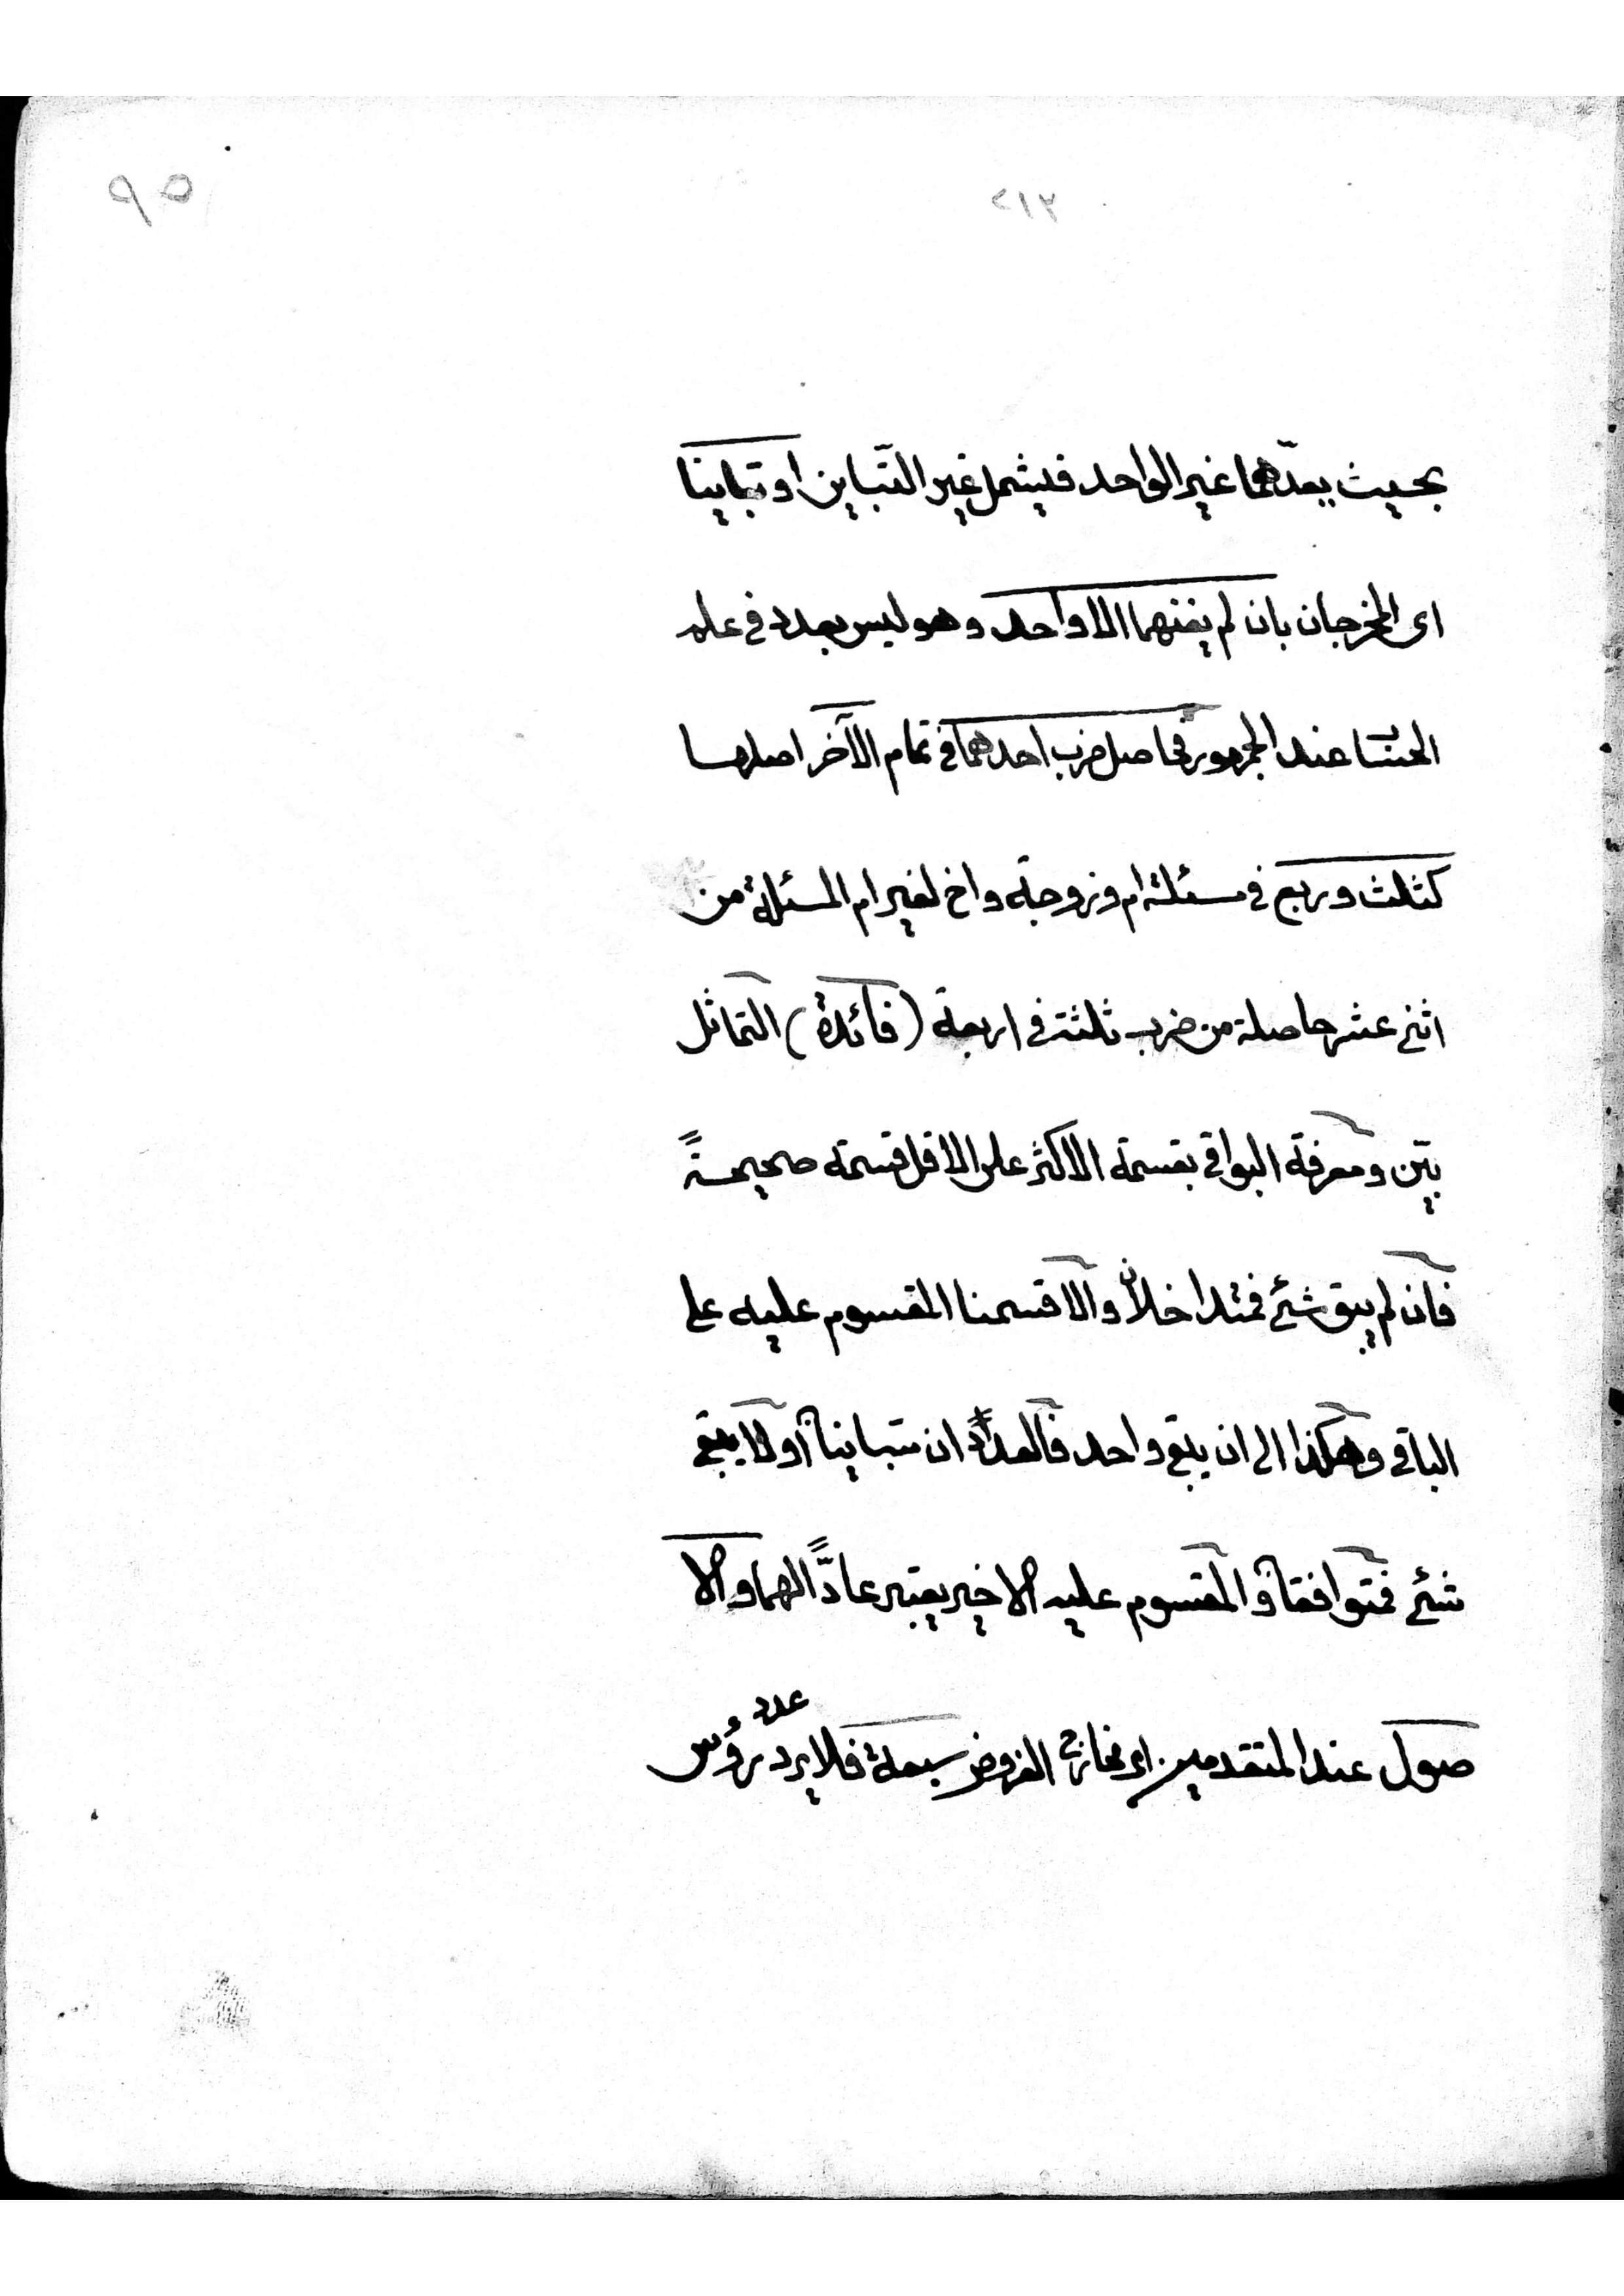 ٩٥
٢١٣
بحيث يعدّهما غير الواحد فيشمل غير التّباين او تباينا
اى المخرجان بان لم يفنهما الا واحد وهو ليس بعدد فى علم
الحساب عند الجمهور فحاصل ضرب احدهما فى تمام الآخر اصلها
كثلث وربع فى مسئلة ام وزوجة واخ لغير ام المسئلة من
اثنى عشر حاصلة من ضرب ثلثة فى اربعة (فائدة) التماثل
بيّن ومعرفة البواقى بقسمة الاكثر على الاقل قسمة صحيحةً
فان لم يبق شئ فمتداخلان والا قسمنا المقسوم عليه على
الباقى وهكذا الى ان يبقى واحد فالعددان تباينا او لا يبقى
شئ فتوافقا والمقسوم عليه الاخير يعتبر عادًّا لهما والا
صول عند المتقدمين اى مخارج الفروض سبعة فلا يرد عدد رؤس